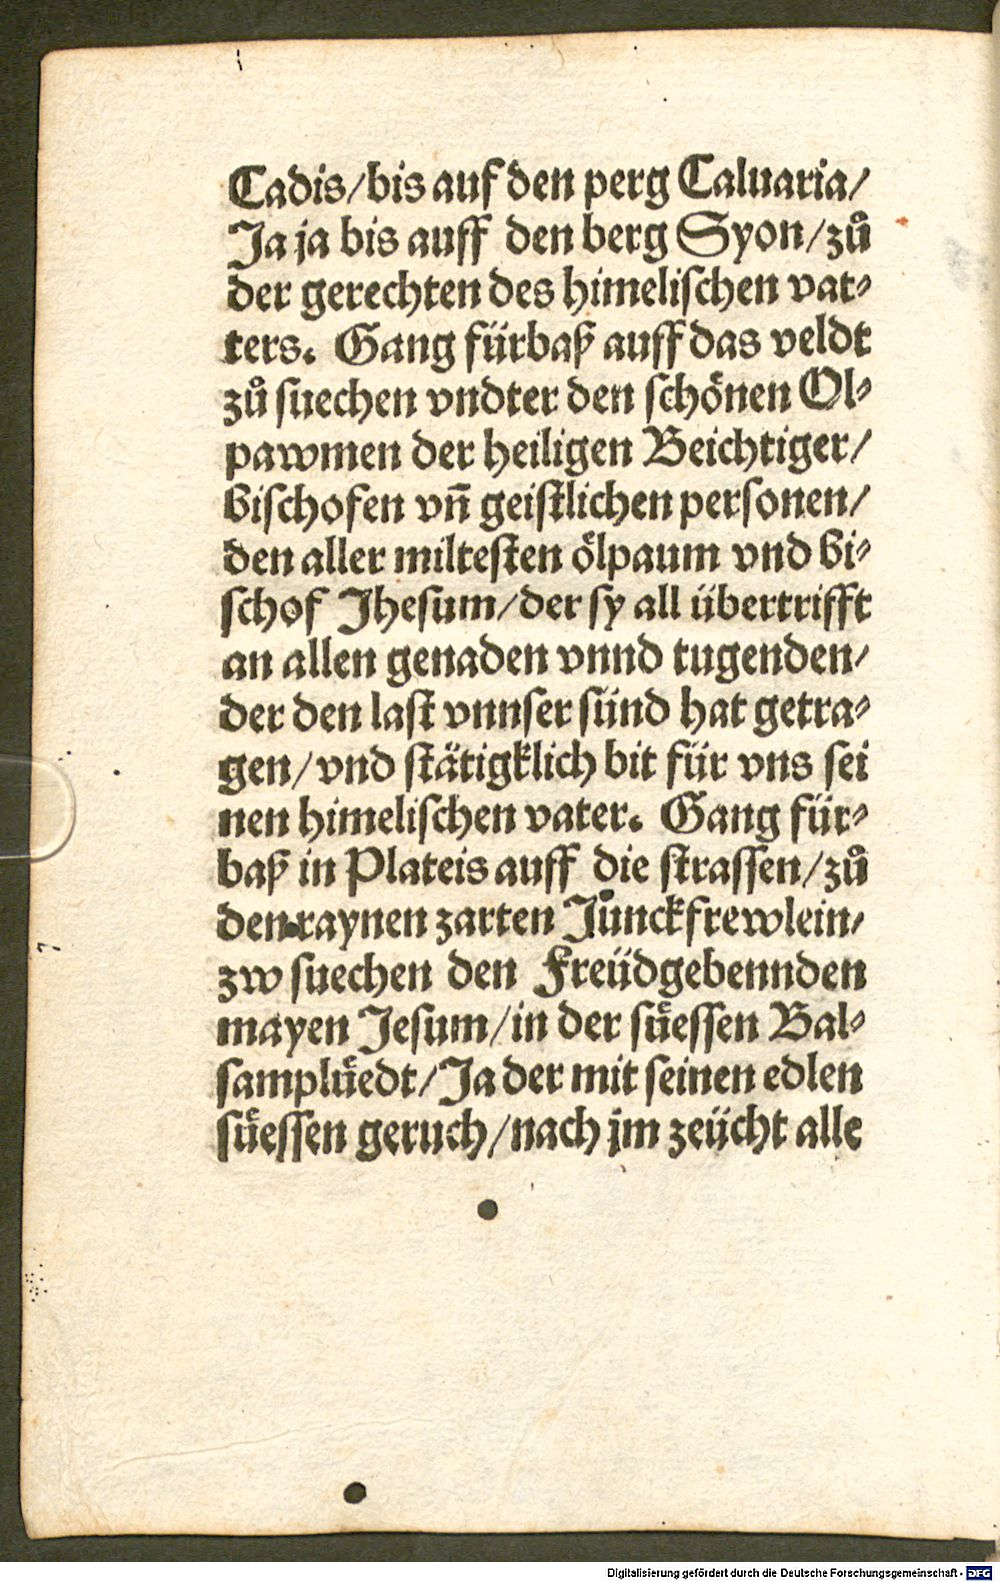 Cadis/bis auf den perg Caluaria/
Ja ja bis auff den berg Syon/zů
der gerechten des himelischen vat⸗
ters. Gang fürbaß auff das veldt
zů suechen vndter den schönen Ol⸗
pawmen der heiligen Beichtiger/
bischofen vn̄ geistlichen personen/
den aller miltesten ölpaum vnd bi⸗
schof Jhesum/der sy all übertrifft
an allen genaden vnnd tugenden/
der den last vnnser sünd hat getra⸗
gen/vnd stätigklich bit für vns sei
nen himelischen vater. Gang für⸗
baß in Plateis auff die strassen/zů
den raynen zarten Jůnckfrewlein/
zw suechen den Freüdgebennden
mayen Jesum/in der süessen Bal⸗
samplüedt/Ja der mit seinen edlen
süessen geruch/nach jm zeücht alle
Digitalisierung gefördert durch die Deutsche Forschungsgemeinschaft - DFG